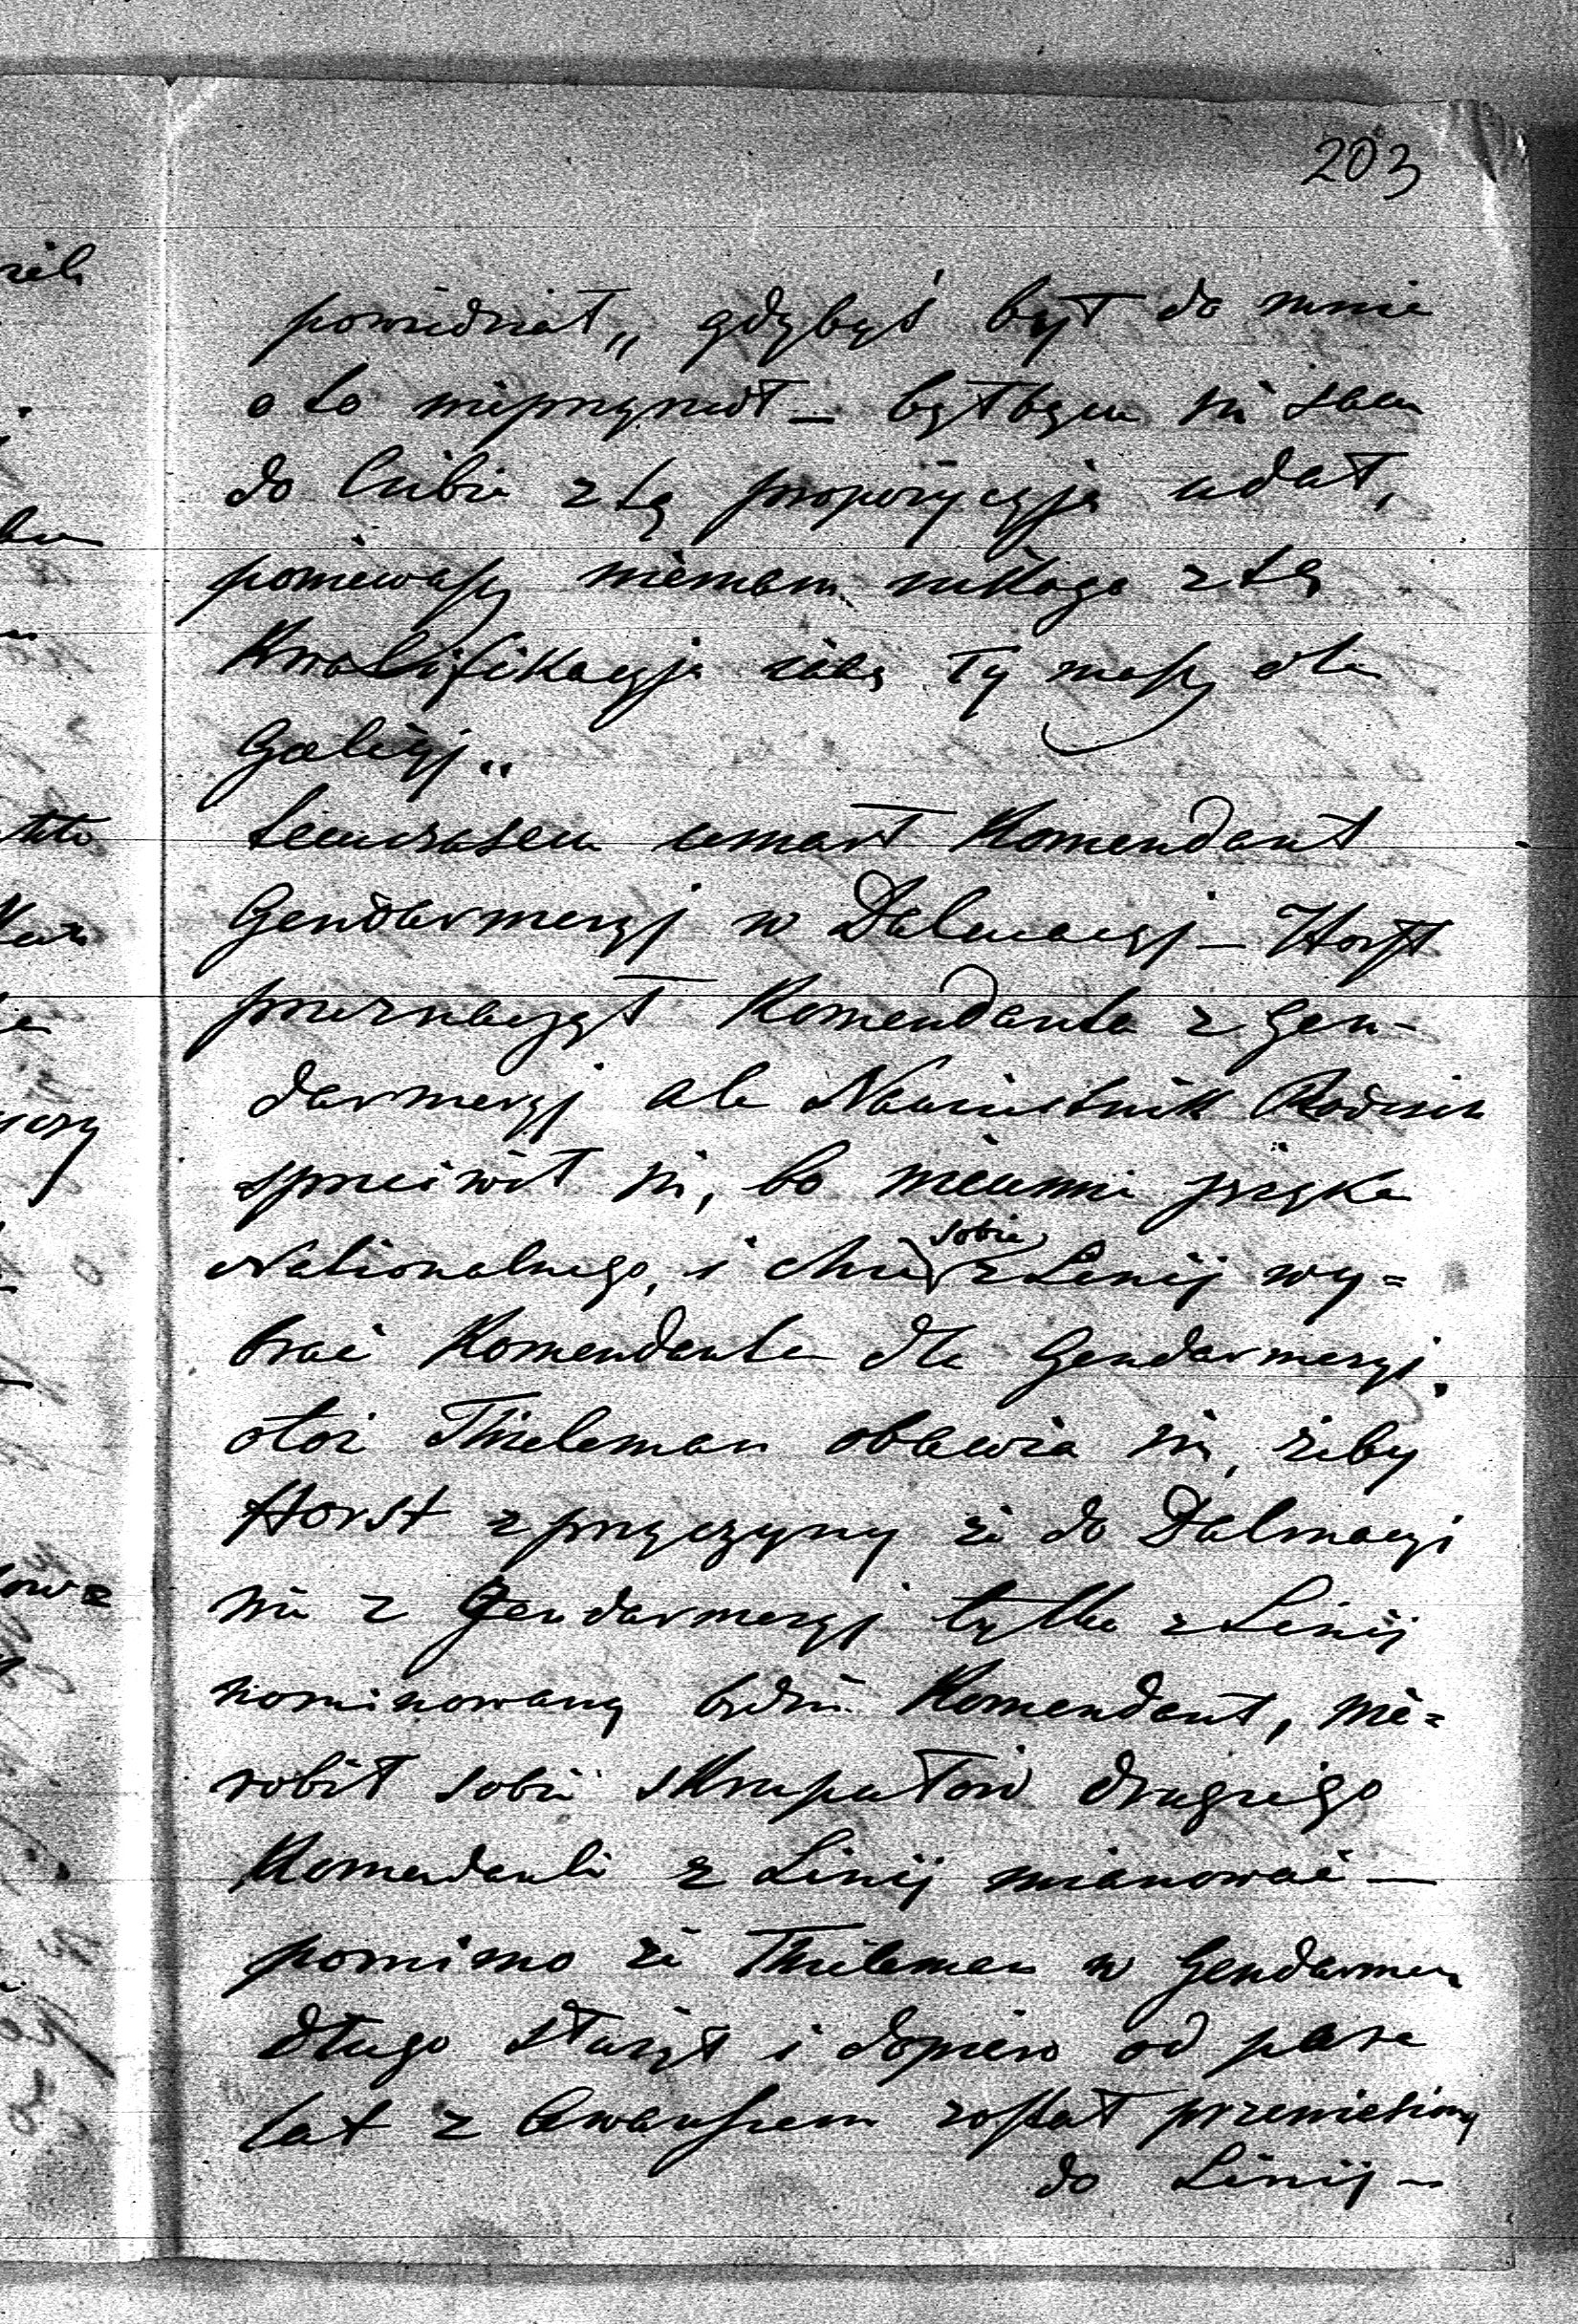 203
powiedział„ gdybyś był do mnie
o to nieprzyszedł – byłbym się sam
do Ciebie z tą propozycyją udał,
ponieważ niemam nikogo z tą
Kwalifikacyją jaką Ty masz dla
Galicyj„
Temczasem umarł Komendant
Gendarmeryj w Dalmacyj – Horst
przeznaczył Komendanta z Gen-
darmeryj ale Namiestnik Rodich
sprzeciwił się, bo nieumie języka
Nationalnego, i chce sobie z Linij wy=
brać Komendanta dla Gendarmeryi,
otóż Thieleman obawia się, żeby
Horst z przyczyny że do Dalmacyi
nie z Gendarmeryj tylko z Linij
nominowany będzie Komendant, nie=
robił sobie skrupułów drugiego
Komendanta z Linij mianować –
pomimo że Thieleman w Gendarmer
długo służył i dopiero od para
lat z Awansem został przeniesiony
do Linij –